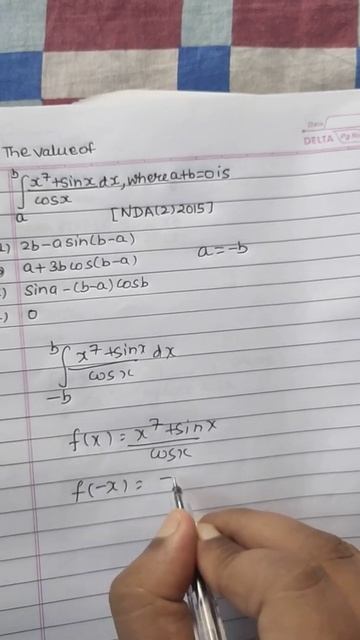 Date
DELTA
The value of
b
∫ x⁷+sinx dx, where a+b=0 is
cosx
a
[NDA(2) 2015]
1) 2b-a sin(b-a)
a=-b
a+3b cos(b-a)
) sina-(b-a)cosb
) 0
b
∫ x⁷+sinx dx
cosx
-b
f(x) = x⁷+sinx
cosx
f(-x) = -